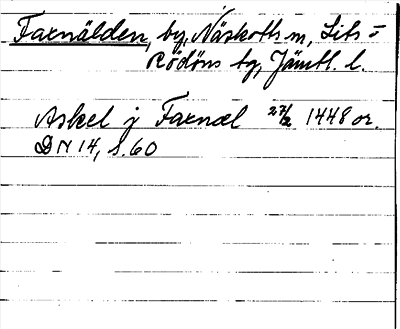 Faxnälden, by, Näskotts sn, Lits-
Rödöns tg, Jämtl. l.
Askel j Faxnæl 27/2 1448 or.
DN 14, s. 60